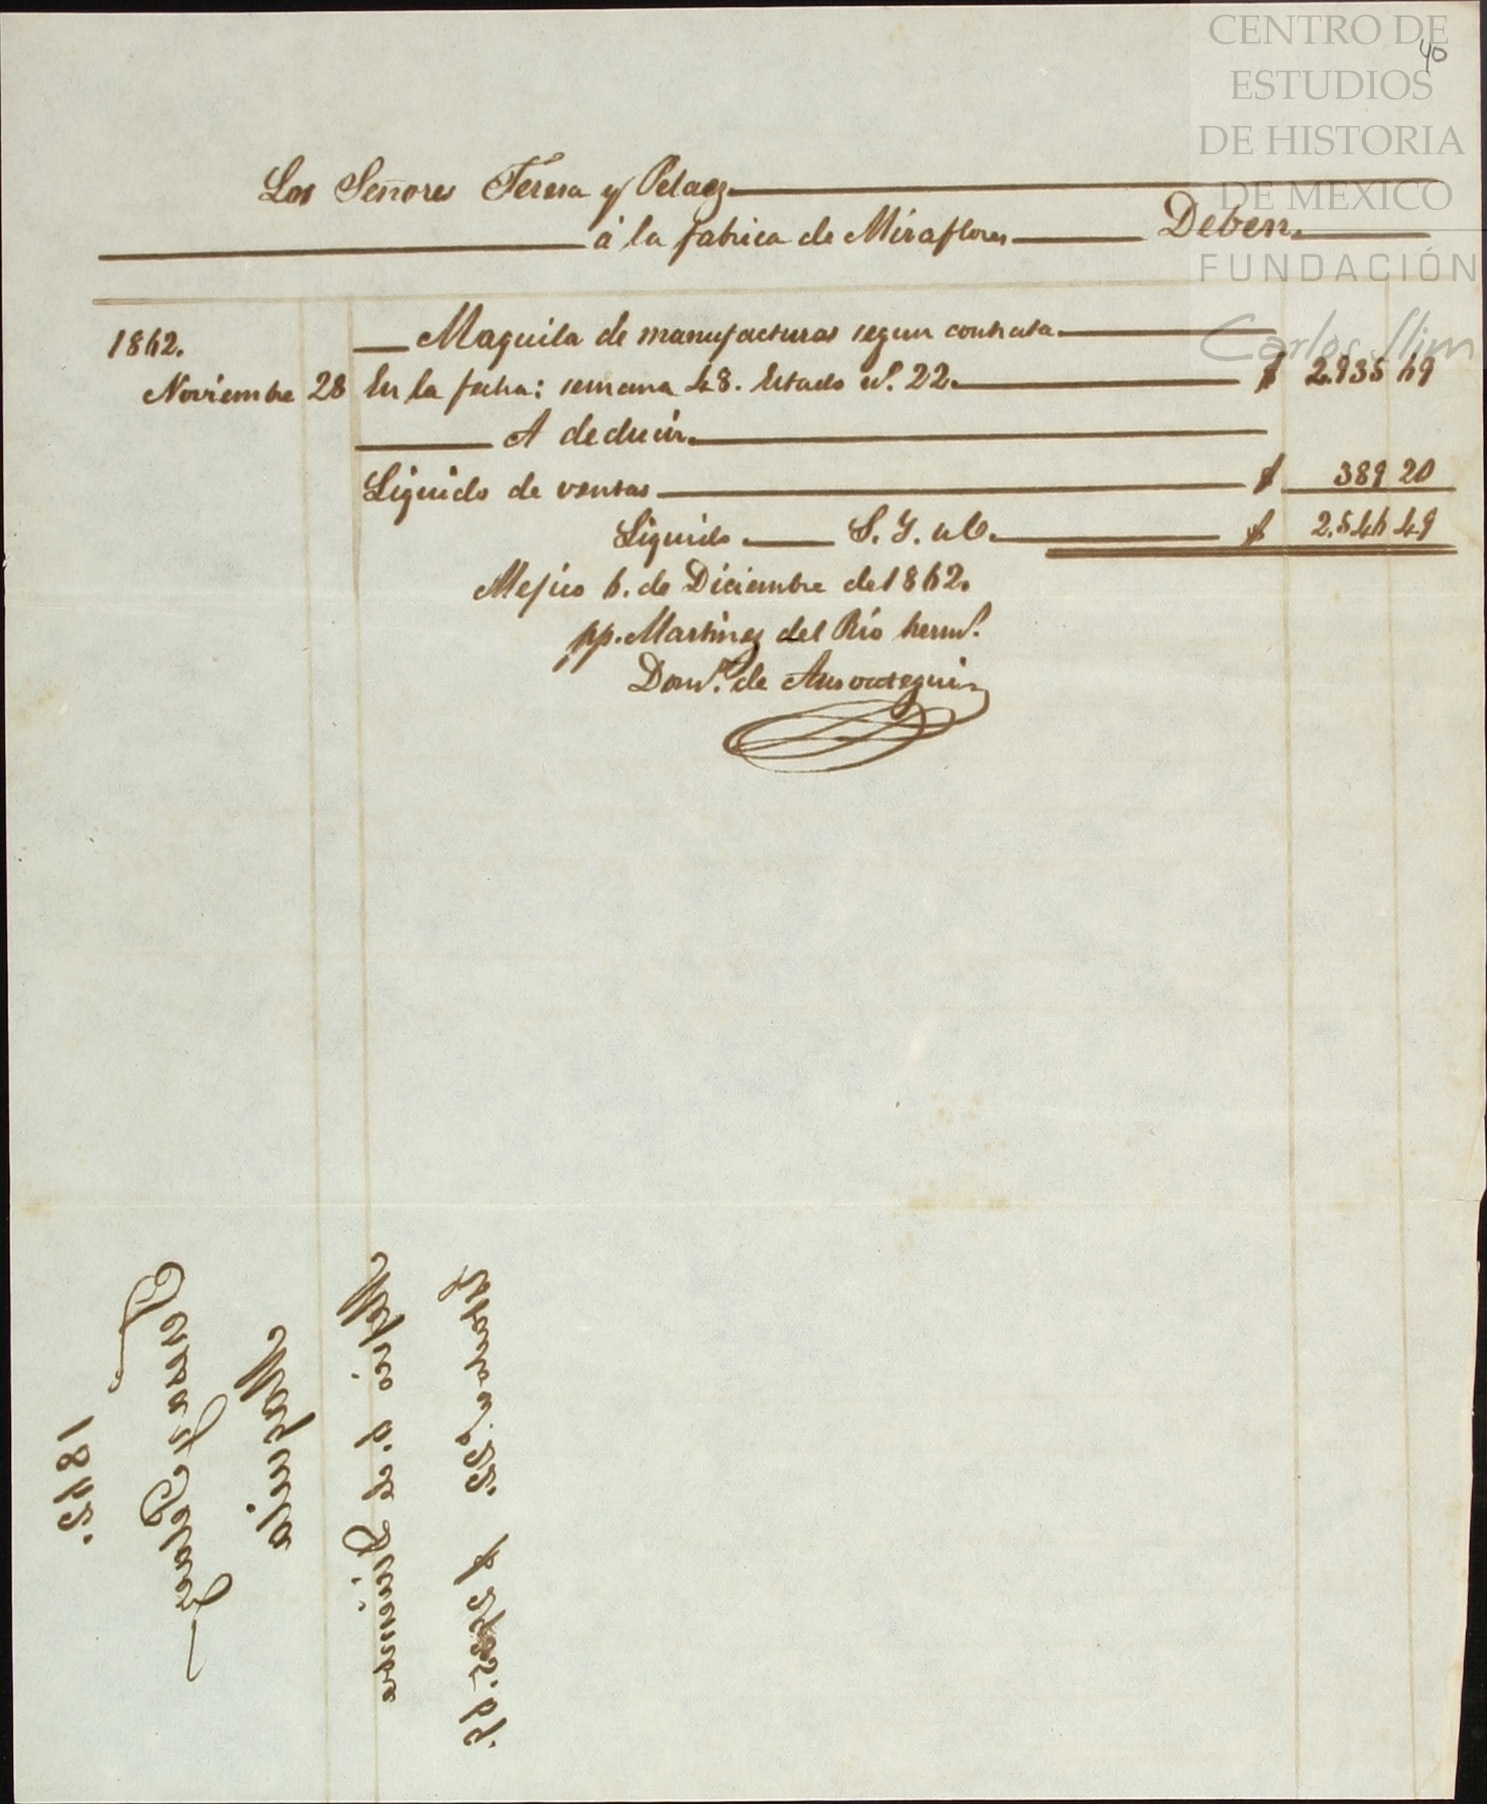 CENTRO DE
ESTUDIOS
DE HISTORIA
DE MEXICO
FUNDACIÓN
Carlos Slim
40
Los Señores Teresa y Pelaez
á la fabrica de Miraflores Deben.
1862. Maquila de manufacturas segun contrata
Noviembre 28 En la fecha: semana 48. Estado nº. 22. $ 2.935 69
A deducir.
Liquido de ventas $ 389 20
Liquido S. Y. u O. $ 2.546 49
Mejico 6. de Diciembre de 1862.
pp. Martinez del Rio hermº.
Domº. de Ansoategui
1862.
Teresa y Pelaez
Maquila
Mejico 6. de Diciembre